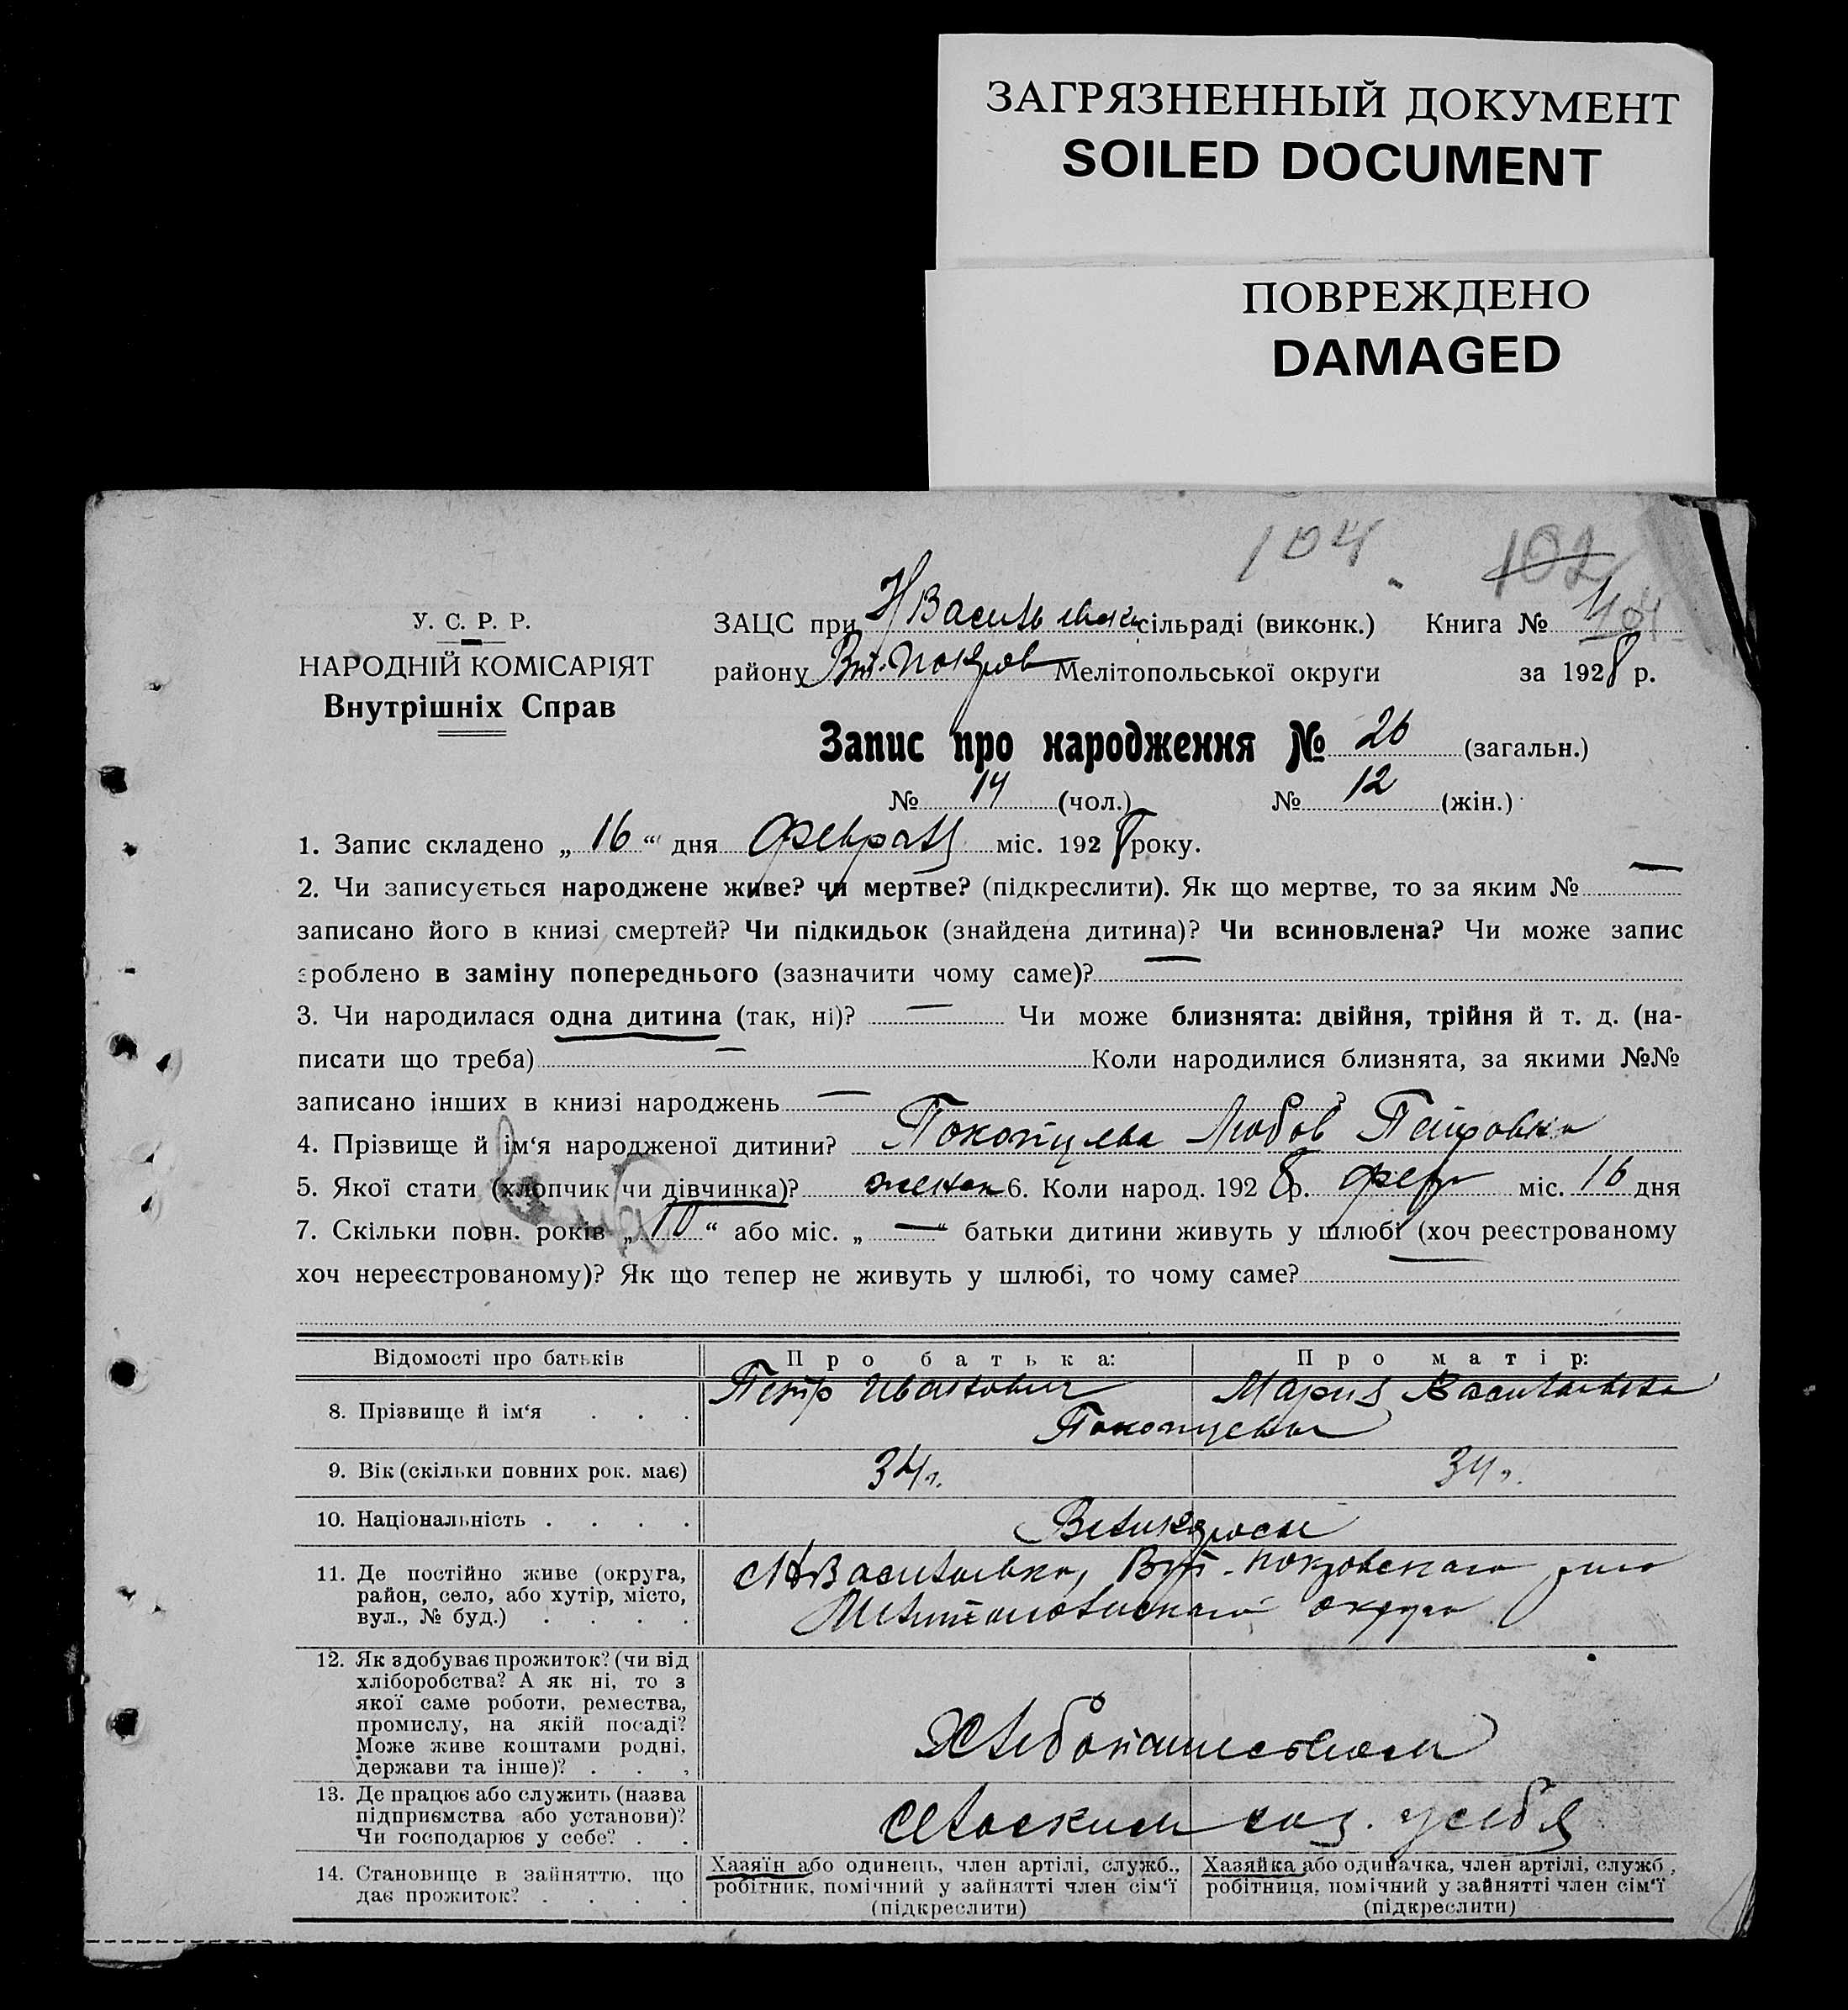 ЗАГРЯЗНЕННЫЙ ДОКУМЕНТ
SOILED DOCUMENT
ПОВРЕЖДЕНО
DAMAGED
104
102
У. С. Р. Р.
НАРОДНІЙ КОМІСАРІЯТ
Внутрішніх Справ
ЗАЦС при сільраді (виконк.) Книга № 104
району Вт.-Покров Мелітопольської округи за 1928 р.
Запис про народження № 26 (загальн.)
№ 14 (чол.) № 12 (жін.)
1. Запис складено „ 16 “ дня Февраля міс. 1928 року.
2. Чи записується народжене живе? чи мертве? (підкреслити). Як що мертве, то за яким № —
записано його в книзі смертей? Чи підкидьок (знайдена дитина)? Чи всиновлена? Чи може запис
зроблено в заміну попереднього (зазначити чому саме)? —
3. Чи народилася одна дитина (так, ні)? — Чи може близнята: двійня, трійня й т. д. (на-
писати що треба) — Коли народилися близнята, за якими №№
записано інших в книзі народжень — ?
4. Прізвище й ім‘я народженої дитини? Любов Петровна
5. Якої стати (хлопчик чи дівчинка)? женск 6. Коли народ. 1928 р. Февр міс. 16 дня
7. Скільки повн. років „ 10 “ або міс. „ — “ батьки дитини живуть у шлюбі (хоч реєстрованому
хоч нереєстрованому)? Як що тепер не живуть у шлюбі, то чому саме? —
Відомості про батьків
Про батька:
Про матір:
8. Прізвище й ім‘я . . .
Петр Иванович
Мария Васильевна
9. Вік (скільки повних рок. має)
34 г.
34 г.
10. Національність . . . .
Великороссы
11. Де постійно живе (округа,
район, село, або хутір, місто,
вул., № буд.) . . . .
Васильевка, Вт.-Покровского р-на
Мелитопольского округа
12. Як здобуває прожиток? (чи від
хліборобства? А як ні, то з
якої саме роботи, ремества,
промислу, на якій посаді?
Може живе коштами родні,
держави та інше)? . . .
Хлебопашеством
13. Де працює або служить (назва
підприємства або установи)?
Чи господарює у себе? . .
сельским хоз. у себя
14. Становище в зайняттю, що
дає прожиток? . . . .
Хазяїн або одинець, член артілі, служб.,
робітник, помічний у зайнятті член сім‘ї
(підкреслити)
Хазяйка або одиначка, член артілі, служб.,
робітниця, помічний у зайнятті член сім‘ї
(підкреслити)